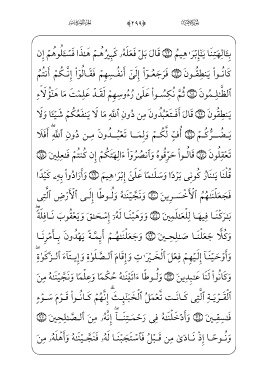 بِـَٔالِهَتِنَا يَٰٓإِبْرَٰهِيمُ ۝ قَالَ بَلْ فَعَلَهُۥ كَبِيرُهُمْ هَٰذَا فَسْـَٔلُوهُمْ إِن
كَانُوا۟ يَنطِقُونَ ۝ فَرَجَعُوٓا۟ إِلَىٰٓ أَنفُسِهِمْ فَقَالُوٓا۟ إِنَّكُمْ أَنتُمُ
ٱلظَّٰلِمُونَ ۝ ثُمَّ نُكِسُوا۟ عَلَىٰ رُءُوسِهِمْ لَقَدْ عَلِمْتَ مَا هَٰٓؤُلَآءِ
يَنطِقُونَ ۝ قَالَ أَفَتَعْبُدُونَ مِن دُونِ ٱللَّهِ مَا لَا يَنفَعُكُمْ شَيْـًٔا وَلَا
يَضُرُّكُمْ ۝ أُفٍّ لَّكُمْ وَلِمَا تَعْبُدُونَ مِن دُونِ ٱللَّهِ أَفَلَا
تَعْقِلُونَ ۝ قَالُوا۟ حَرِّقُوهُ وَٱنصُرُوٓا۟ ءَالِهَتَكُمْ إِن كُنتُمْ فَٰعِلِينَ ۝
قُلْنَا يَٰنَارُ كُونِى بَرْدًا وَسَلَٰمًا عَلَىٰٓ إِبْرَٰهِيمَ ۝ وَأَرَادُوا۟ بِهِۦ كَيْدًا
فَجَعَلْنَٰهُمُ ٱلْأَخْسَرِينَ ۝ وَنَجَّيْنَٰهُ وَلُوطًا إِلَى ٱلْأَرْضِ ٱلَّتِى
بَٰرَكْنَا فِيهَا لِلْعَٰلَمِينَ ۝ وَوَهَبْنَا لَهُۥٓ إِسْحَٰقَ وَيَعْقُوبَ نَافِلَةً
وَكُلًّا جَعَلْنَا صَٰلِحِينَ ۝ وَجَعَلْنَٰهُمْ أَئِمَّةً يَهْدُونَ بِأَمْرِنَا
وَأَوْحَيْنَآ إِلَيْهِمْ فِعْلَ ٱلْخَيْرَٰتِ وَإِقَامَ ٱلصَّلَوٰةِ وَإِيتَآءَ ٱلزَّكَوٰةِ
وَكَانُوا۟ لَنَا عَٰبِدِينَ ۝ وَلُوطًا ءَاتَيْنَٰهُ حُكْمًا وَعِلْمًا وَنَجَّيْنَٰهُ مِنَ
ٱلْقَرْيَةِ ٱلَّتِى كَانَت تَّعْمَلُ ٱلْخَبَٰٓئِثَ إِنَّهُمْ كَانُوا۟ قَوْمَ سَوْءٍ
فَٰسِقِينَ ۝ وَأَدْخَلْنَٰهُ فِى رَحْمَتِنَآ إِنَّهُۥ مِنَ ٱلصَّٰلِحِينَ ۝
وَنُوحًا إِذْ نَادَىٰ مِن قَبْلُ فَٱسْتَجَبْنَا لَهُۥ فَنَجَّيْنَٰهُ وَأَهْلَهُۥ مِنَ